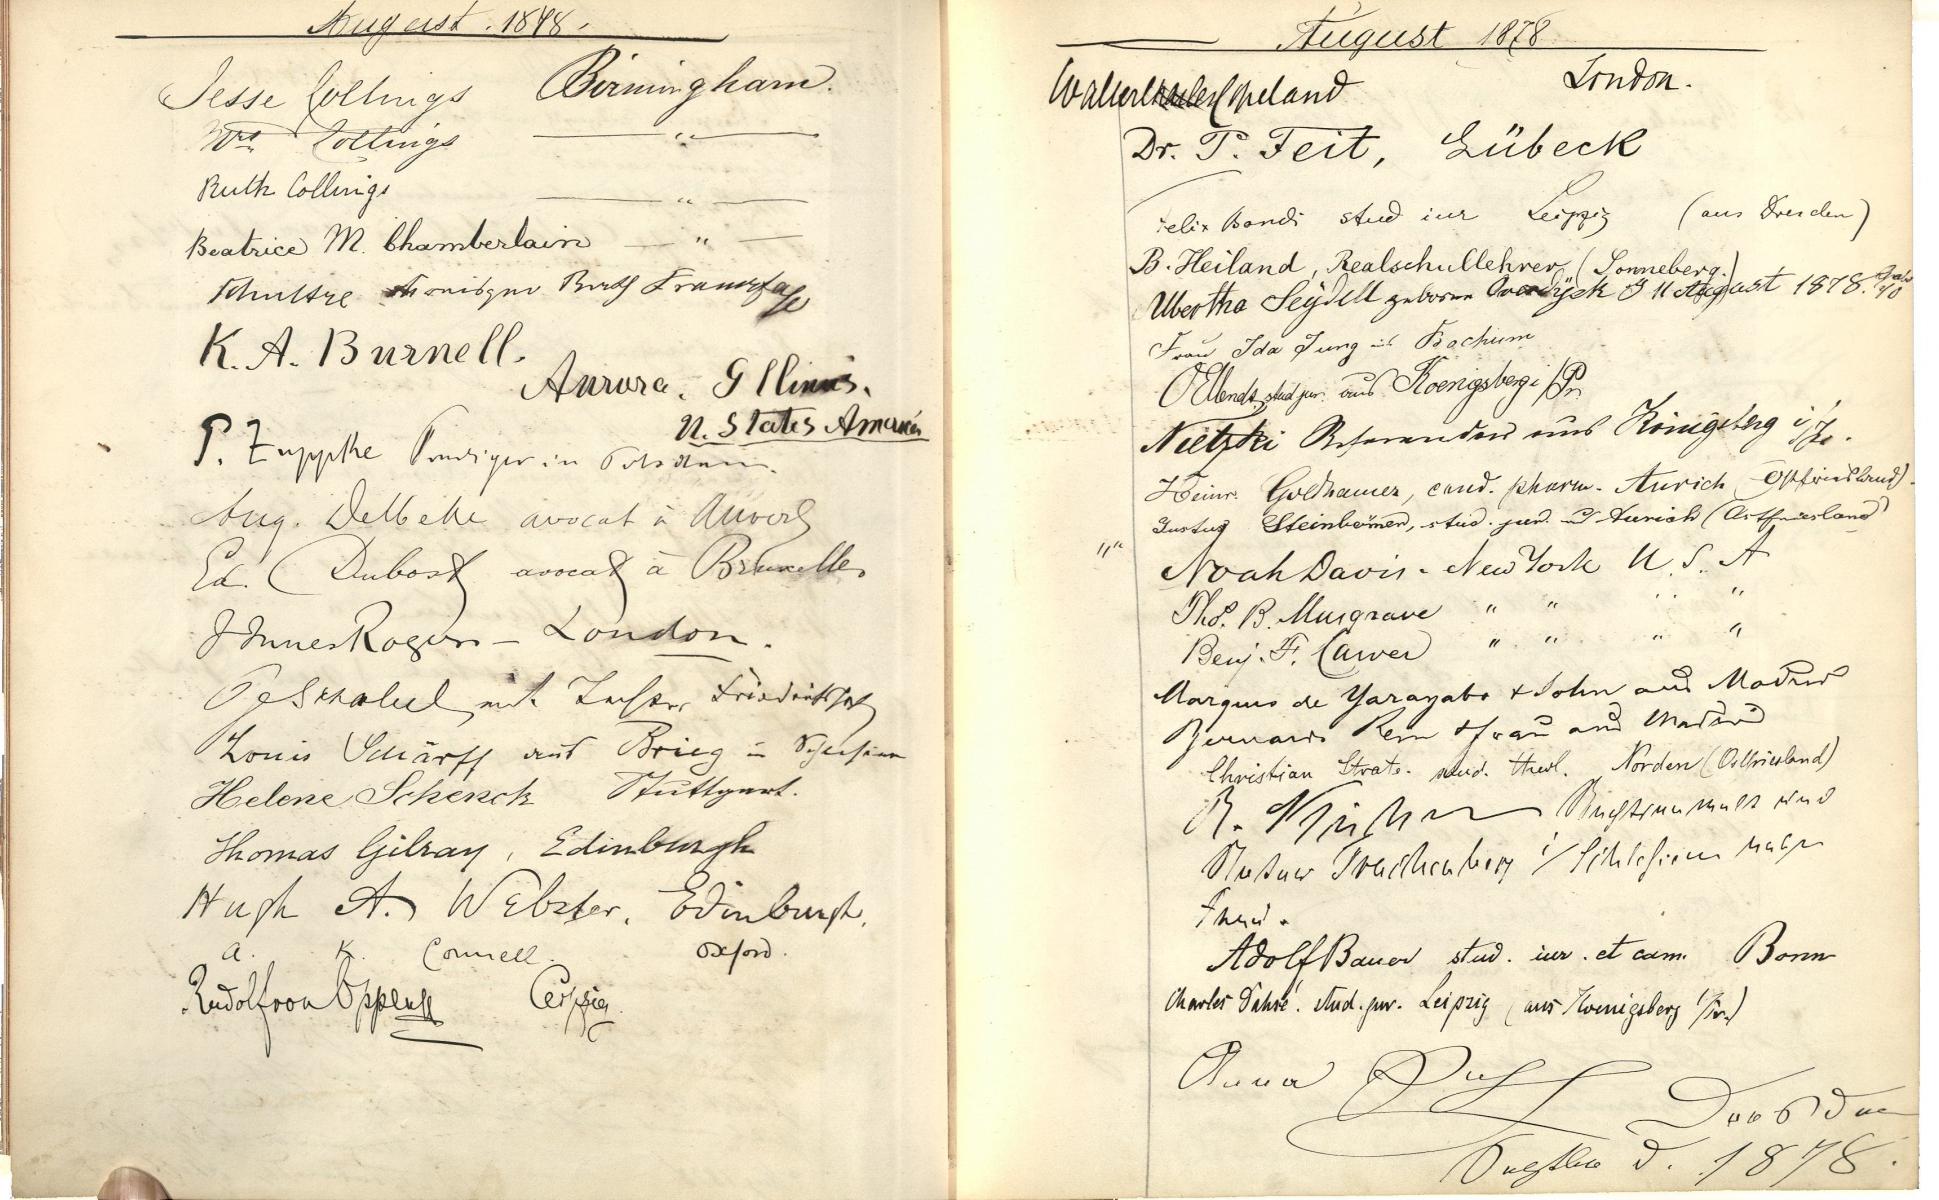 August. 1878.
Jesse Collings Birmingham.
Mrs. Collings — " —
Ruth Collings — " —
Beatrice M. Chamberlain — " —
Schultze
K. A. Burnell.
Aurora. Illinois.
U. States America
P. Zuppke Prediger in Potsdam.
Aug. Delbeke avocat à Anvers
Ed. Dubost avocat à Bruxelles
J Innes Rogers – London.
mit
Louis Schärff aus Brieg in Schlesien
Helene Schenck Stuttgart.
Thomas Gilray, Edinburgh
Hugh A. Webster. Edinburgh.
A. K. Connell. Oxford.
Rudolf von Oppen Leipzig
August 1878
Walter Copeland London.
Dr. P. Feit, Lübeck
Felix Bondi stud iur Leipzig (aus Dresden)
B. Heiland, Realschullehrer, (Sonneberg.)
Seydell geboren 11 August 1878.
Frau Ida Jung aus Bochum
stud jur. aus Koenigsberg i/Pr.
Nietzki Referendar aus Königsberg i/Pr.
Heinr. Goldhamer, cand. pharm. Aurich (Ostfriesland).
Justus Steinbömer, stud. jur. aus Aurich (Ostfriesland)
Noah Davis - New York U. S. A
Tho. B. Musgrave " " " "
Benj. F. Carver " " " "
Marquis de Yarayabo & Sohn aus Madrid
Bernardo Rein & Frau aus Madrid
Christian Strato. stud. theol. Norden (Ostfriesland)
R. Rechtsanwalt und
Notar Trachenberg i/ Schlesien nebst
Frau.
Adolf Bauer stud. iur. et cam. Bonn
Charles stud. jur. Leipzig (aus Koenigsberg i/Pr.)
Anna
Dresden
d. 1878.